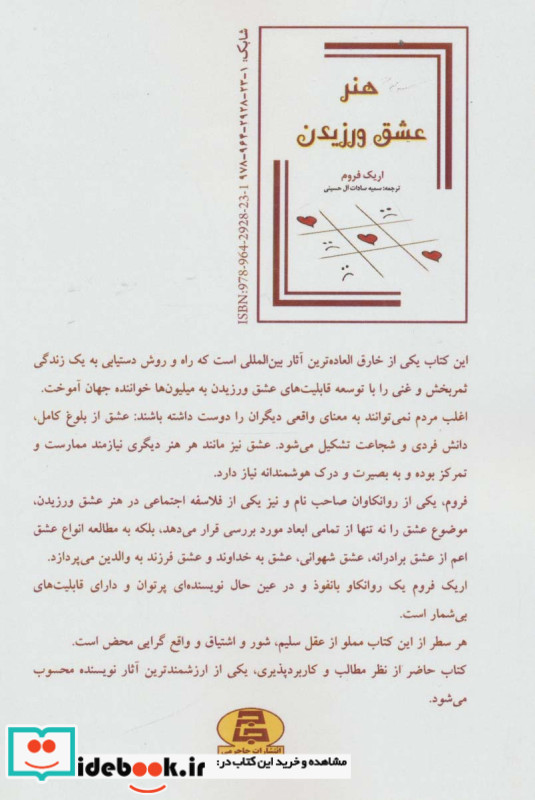 هنر
عشق ورزیدن
اریک فروم
ترجمه: سمیه سادات آل حسینی
شابک: ۱-۲۳-۲۹۲۸-۹۶۴-۹۷۸
ISBN:978-964-2928-23-1
این کتاب یکی از خارق العاده‌ترین آثار بین‌المللی است که راه و روش دستیابی به یک زندگی
ثمربخش و غنی را با توسعه قابلیت‌های عشق ورزیدن به میلیون‌ها خواننده جهان آموخت.
اغلب مردم نمی‌توانند به معنای واقعی دیگران را دوست داشته باشند: عشق از بلوغ کامل،
دانش فردی و شجاعت تشکیل می‌شود. عشق نیز مانند هر هنر دیگری نیازمند ممارست و
تمرکز بوده و به بصیرت و درک هوشمندانه نیاز دارد.
فروم، یکی از روانکاوان صاحب نام و نیز یکی از فلاسفه اجتماعی در هنر عشق ورزیدن،
موضوع عشق را نه تنها از تمامی ابعاد مورد بررسی قرار می‌دهد، بلکه به مطالعه انواع عشق
اعم از عشق برادرانه، عشق شهوانی، عشق به خداوند و عشق فرزند به والدین می‌پردازد.
اریک فروم یک روانکاو بانفوذ و در عین حال نویسنده‌ای پرتوان و دارای قابلیت‌های
بی‌شمار است.
هر سطر از این کتاب مملو از عقل سلیم، شور و اشتیاق و واقع گرایی محض است.
کتاب حاضر از نظر مطالب و کاربردپذیری، یکی از ارزشمندترین آثار نویسنده محسوب
می‌شود.
انتشارات جاجرمی
مشاهده و خرید این کتاب در:
idebook.ir